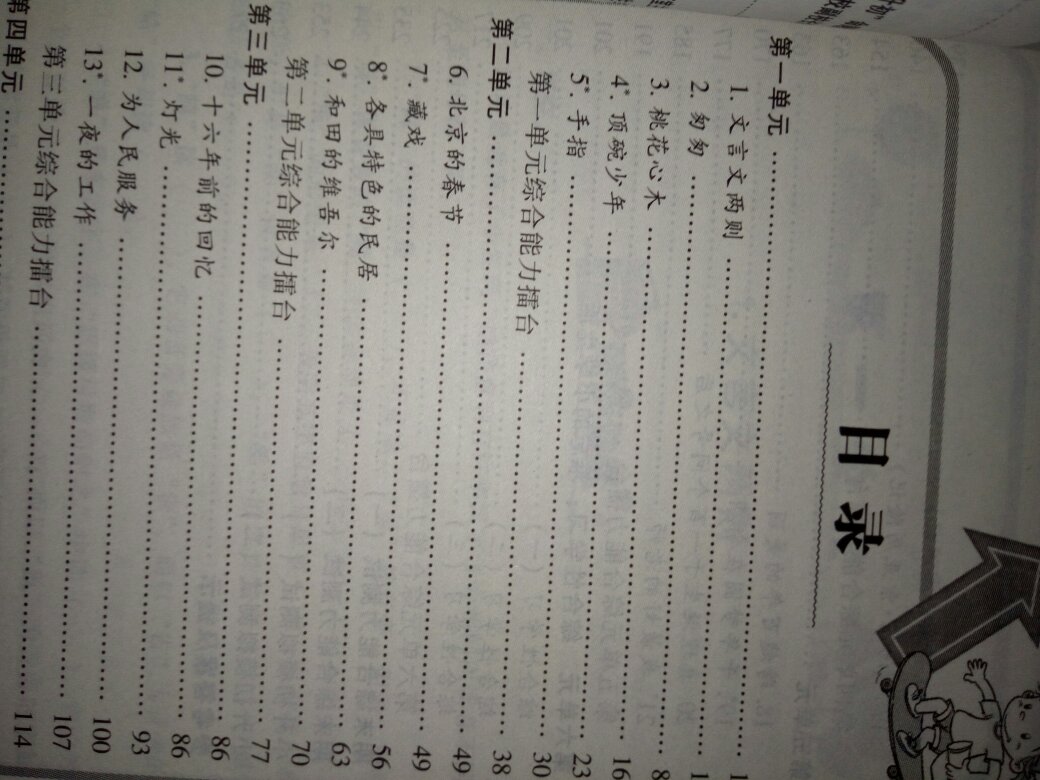 目录
第一单元 …… 1
1. 文言文两则 …… 1
2. 匆匆 …… 8
3. 桃花心木 …… 16
4*. 顶碗少年 …… 23
5*. 手指 …… 30
第一单元综合能力擂台 …… 38
第二单元 …… 49
6. 北京的春节 …… 49
7*. 藏戏 …… 56
8*. 各具特色的民居 …… 63
9*. 和田的维吾尔 …… 70
第二单元综合能力擂台 …… 77
第三单元 …… 86
10. 十六年前的回忆 …… 86
11*. 灯光 …… 93
12. 为人民服务 …… 100
13*. 一夜的工作 …… 107
第三单元综合能力擂台 …… 114
第四单元 ……